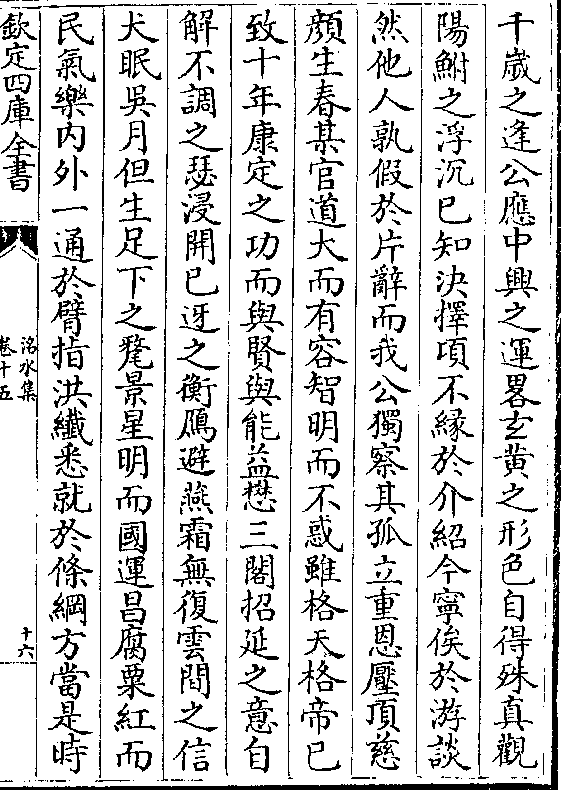 千歲之逢公應中興之運畧玄黄之形色自得殊真觀
陽鮒之浮沉已知決擇項不緣於介紹今寧俟於游談
然他人孰假於片辭而我公獨察其孤立重恩壓頂慈
顔生春某官道大而有容智明而不惑雖格天格帝已
致十年康定之功而與賢與能益懋三閣招延之意自
解不調之瑟浸開已迓之衡鴈避燕霜無復雲間之信
犬眠吳月但生足下之氂景星明而國運昌腐粟紅而
民氣樂内外一通於臂指洪纖悉就於條綱方當是時
欽定四庫全書
洺水集
卷十五
十六